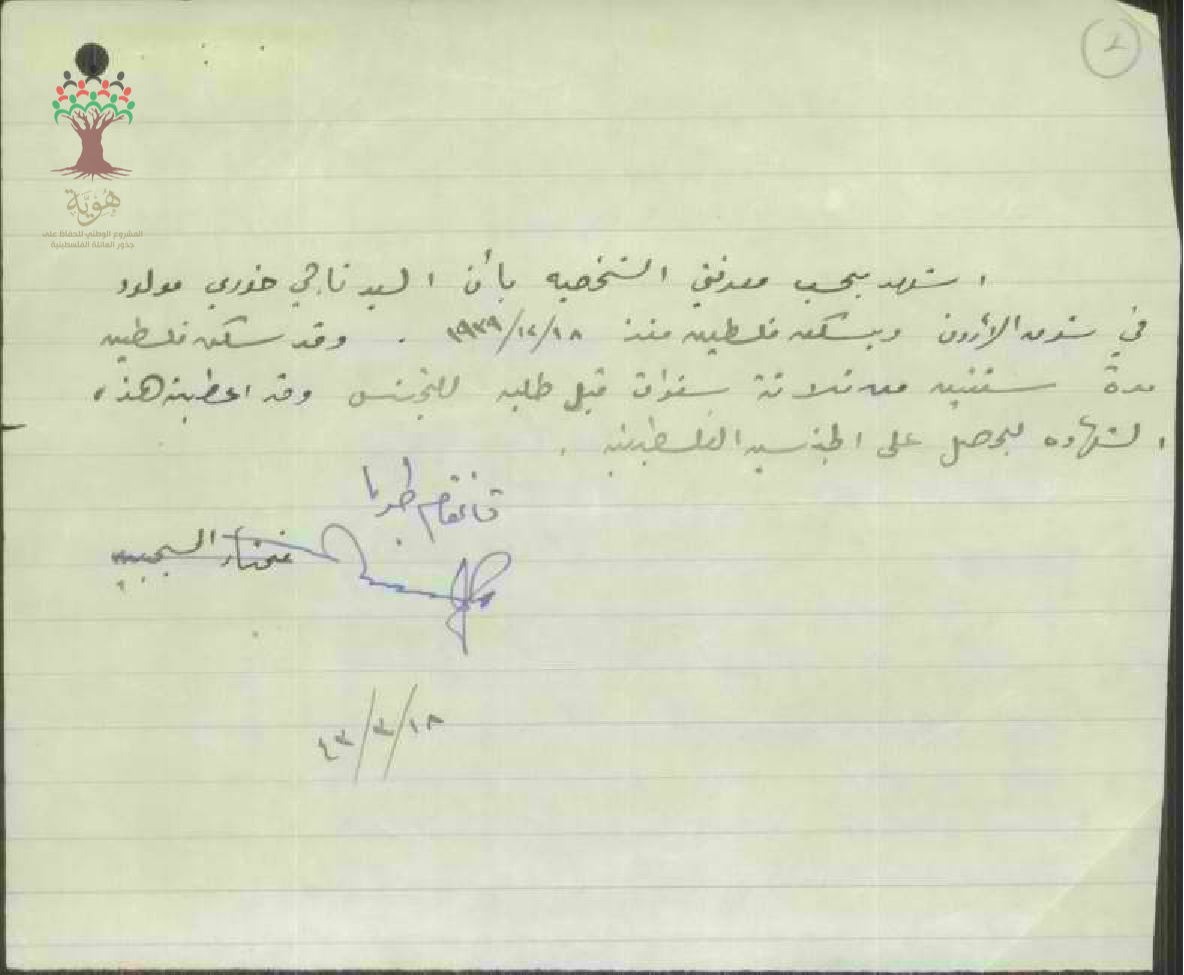 ٢
هُوِيَّة
المشروع الوطني للحفاظ على
جذور العائلة الفلسطينية
اشهد بحسب معرفتي الشخصيه بأن السيد ناجي خوري مولود
في شرق الأردن ويسكن فلسطين منذ ١٨/١٢/١٩٣٩ . وقد سكن فلسطين
مدة سنتين من ثلاثة سنوات قبل طلبه للتجنس وقد اعطيته هذه
الشهاده ليحصل على الجنسيه الفلسطينيه .
قائمقام طبريا
مختار
١٨/٣/٤٣